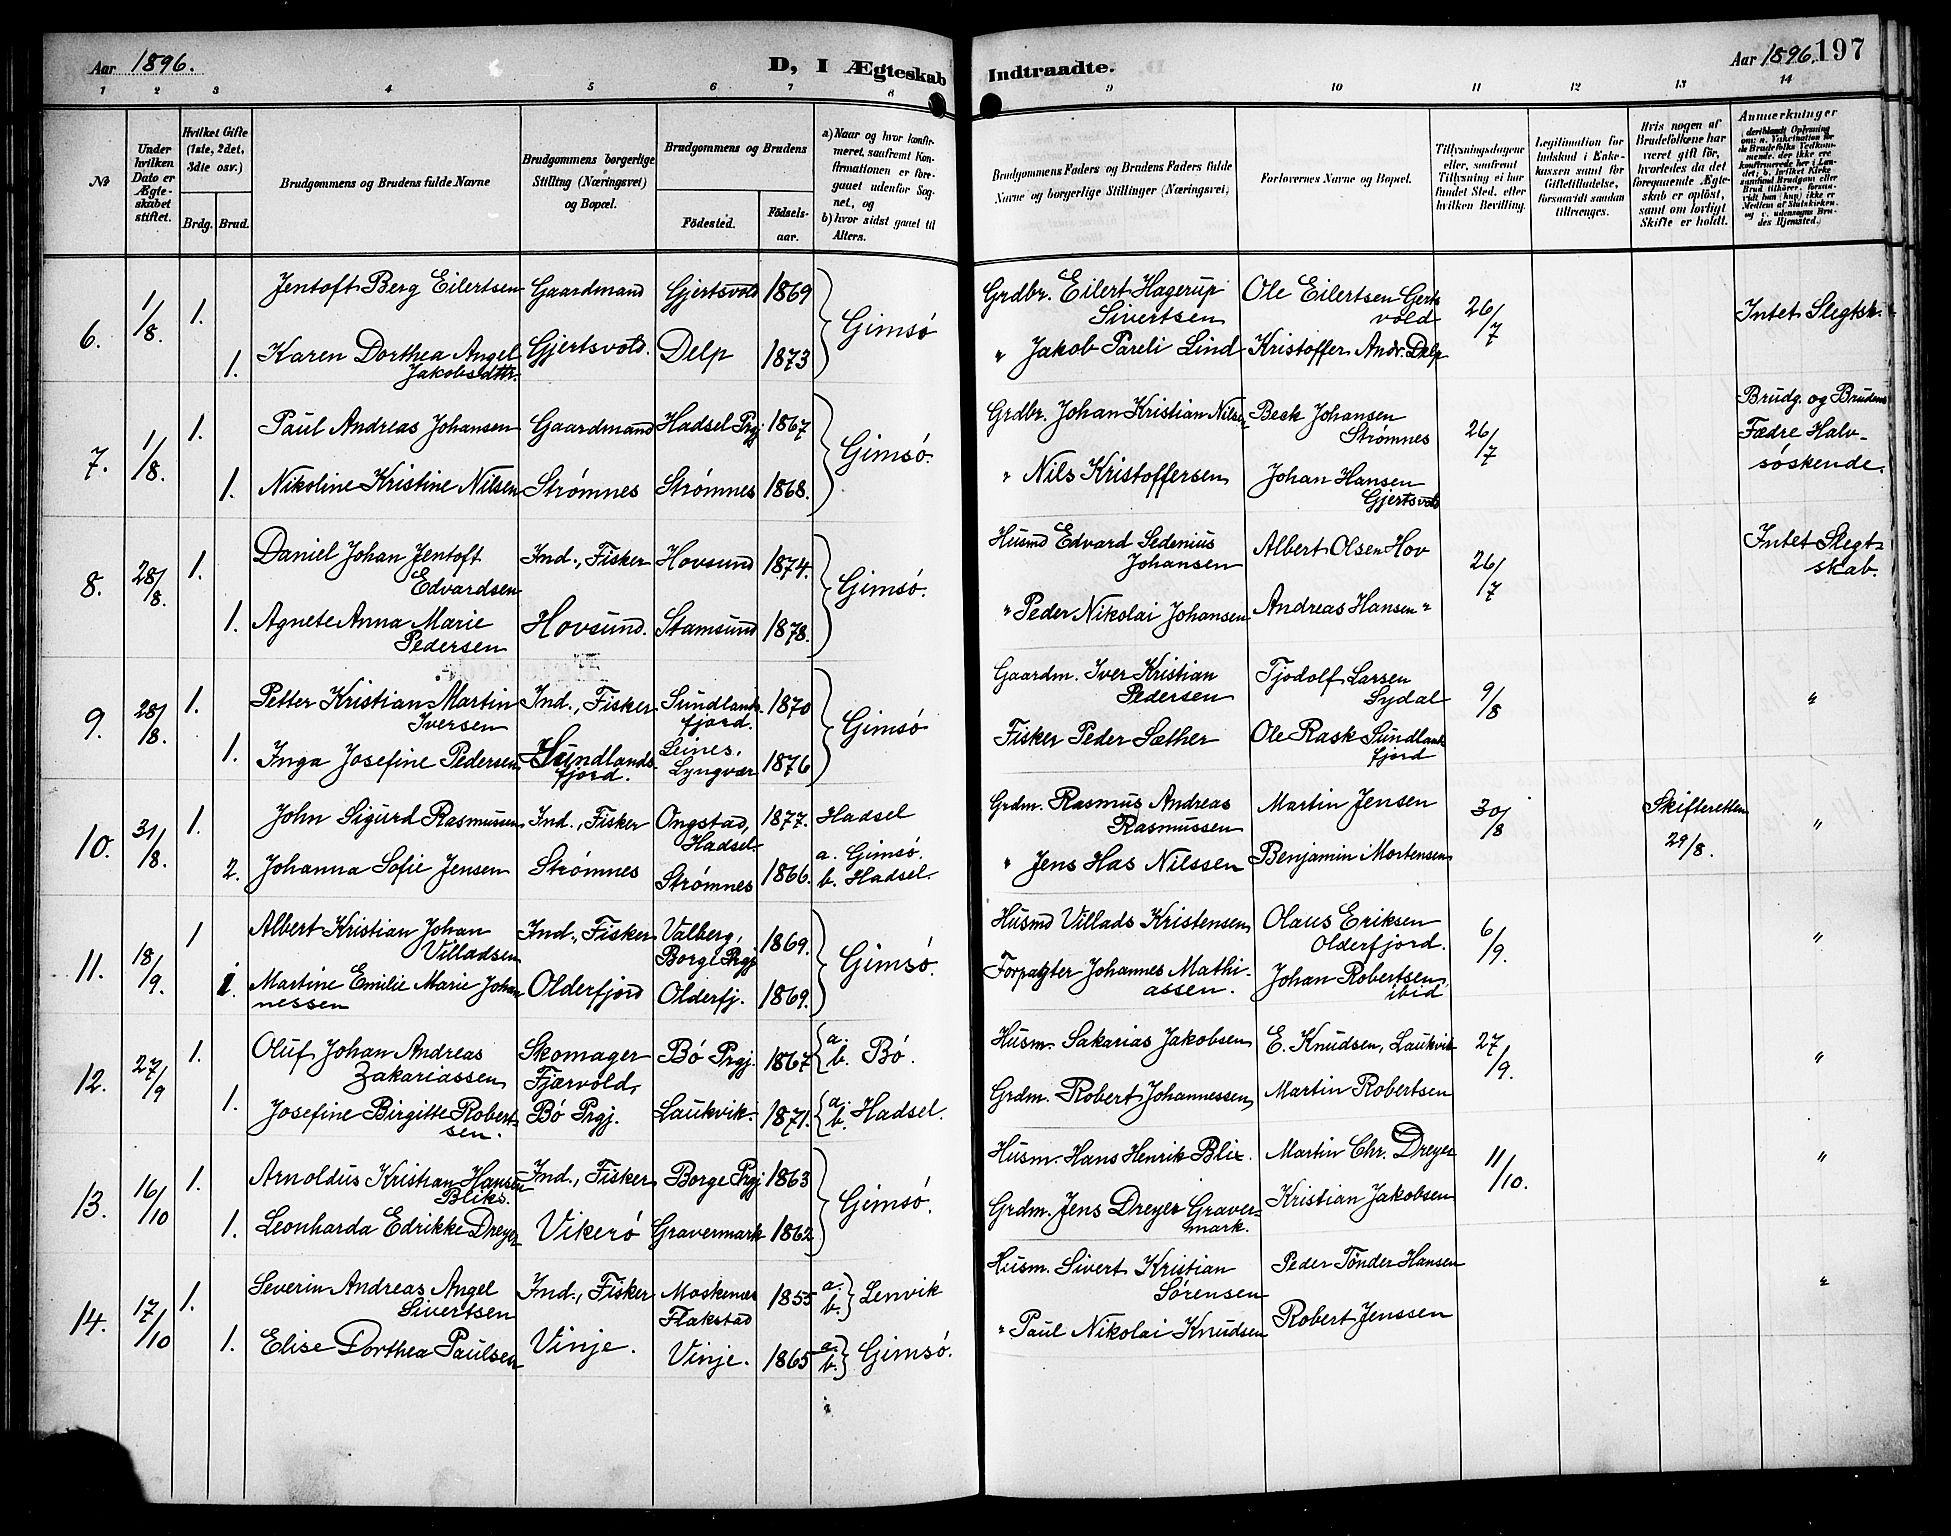 Aar 1896.
D, I Ægteskab Indtraadte.
Aar 1896. 197
1 2 3 4 5 6 7 8 9 10 11 12 13 14
No
Under hvilken Dato er Ægteskabet stiftet.
Hvilket Gifte (1ste, 2det, 3die osv.)
Brdg. Brud.
Brudgommens og Brudens fulde Navne
Brudgommens borgerlige Stilling (Næringsvei) og Bopæl.
Brudgommens og Brudens
Fødested.
Fødselsaar.
a) Naar og hvor konfirmeret, saafremt Konfirmationen er foregaaet udenfor Sognet, og
b) hvor sidst gaaet til Alters.
Brudgommens Faders og Brudens Faders fulde Navne og borgerlige Stillinger (Næringsvei)
Forlovernes Navne og Bopæl.
Tillysningsdagene eller, saafremt Tillysning ei har fundet Sted, efter hvilken Bevilling.
Legitimation for Indskud i Enkekassen samt for Giftetilladelse, forsaavidt saadan tiltrænges.
Hvis nogen af Brudefolkene har været gift før, hvorledes da det foregaaende Ægteskab er opløst, samt om lovligt Skifte er holdt.
Anmærkninger
6. 1/8. 1. Jentoft Berg Eilertsen Gaardmand Gjertsvold 1869 Gimsó Grdbr. Eilert Hagerup Sivertsen Ole Eilertsen Gertsvold 26/7 Intet Slegtsk.
1. Karen Dorthea Angel Jakobsdttr. Gjertsvold. Delp 1873 " Jakob Pareli Lind Kristoffer Andr. Delp
7. 1/8. 1. Paul Andreas Johansen Gaardmand Hadsel Prgj 1867 Gimsó. Grdbr. Johan Kristian Nilsen Beck Johansen Strømnes 26/7 Brudg. og Brudens Fædre Halvsøskende.
1. Nikoline Kristine Nilsen Strømnes Strømnes 1868. " Nils Kristoffersen Johan Hansen Gjertsvold
8. 28/8. 1. Daniel Johan Jentoft Edvardsen Ind., Fisker Hovsund 1874. Gimsó. Husmd Edvard Sedenius Johansen Albert Olsen Hov 26/7 Intet Slegtskab.
1. Agnete Anna Marie Pedersen Hovsund. Stamsund 1878. " Peder Nikolai Johansen Andreas Hansen "
9. 28/8. 1. Petter Kristian Martin Iversen Ind., Fisker Sundlandsfjord. 1870 Gimsó Gaardm. Iver Kristian Pedersen Tjodolf Larsen Sydal 9/8 "
1. Inga Josefine Pedersen Sundlandsfjord. Leines, Lyngvær 1876 Fisker Peder Sæther Ole Rask Sundlandsfjord
10. 31/8. 1. John Sigurd Rasmussen Ind., Fisker Ongstad, Hadsel. 1877. Hadsel Grdm. Rasmus Andreas Rasmussen Martin Jensen 30/8 Skifteretten 29/8. "
2. Johanna Sofie Jensen Strømnes Strømnes 1866. a. Gimsó. b. Hadsel. " Jens Has Nilssen Benjamin Mortensen
11. 18/9. 1 Albert Kristian Johan Villadsen Ind., Fisker Valberg, Borge Prgj 1869. Gimsó. Husmd Villads Kristensen Olaus Eriksen Olderfjord. 6/9. "
1. Martine Emilie Marie Johannessen Olderfjord Olderfj. 1869. Forpagter Johannes Mathiassen. Johan Robertsen ibid
12. 27/9 1. Oluf Johan Andreas Zakariassen Skomager Fjærvold, Bó Prgj. 1867 a. b. Bó. Husm. Sakarias Jakobsen E. Knudsen, Laukvik 27/9. "
1. Josefine Birgitte Robertsen. Bó Prgj. Laukvik. 1871. a. b. Hadsel. Grdm. Robert Johannessen Martin Robertsen
13. 16/10 1. Arnoldus Kristian Hansen Bliks. Ind., Fisker Borge Prgj 1863 Gimsó. Husm. Hans Henrik Blix. Martin Chr. Dreyer 11/10. "
1. Leonharda Edrikke Dreyer Vikeró Gravermark 1862 Grdm. Jens Dreyer Gravermark. Kristian Jakobsen
14. 17/10 1. Severin Andreas Angel Sivertsen Ind., Fisker Moskenes Flakstad 1855 a. b. Lenvik Husm. Sivert Kristian Sórensen Peder Tónder Hansen "
1. Elise Dorthea Paulsen Vinje. Vinje. 1865 a. b. Gimsó. " Paul Nikolai Knudsen Robert Jenssen